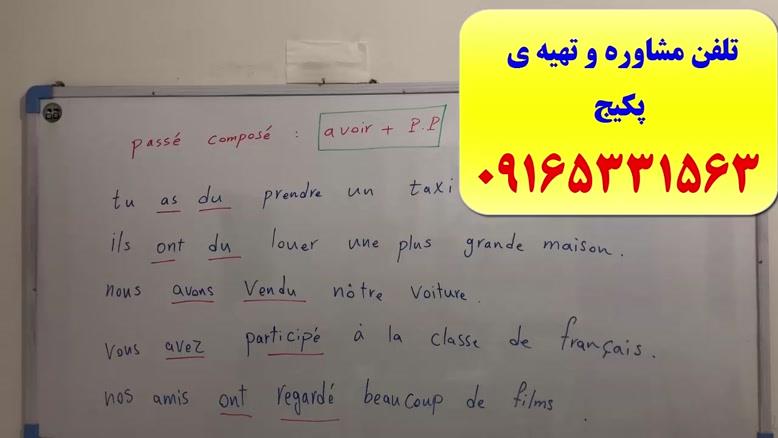 تلفن مشاوره و تهیه ی
پکیج
۰۹۱۶۵۳۳۱۵۶۳
passé composé : avoir + P.P
tu as du prendre un taxi
ils ont du louer une plus grande maison.
nous avons vendu nôtre voiture.
vous avez participé à la classe de français.
nos amis ont regardé beaucoup de films.